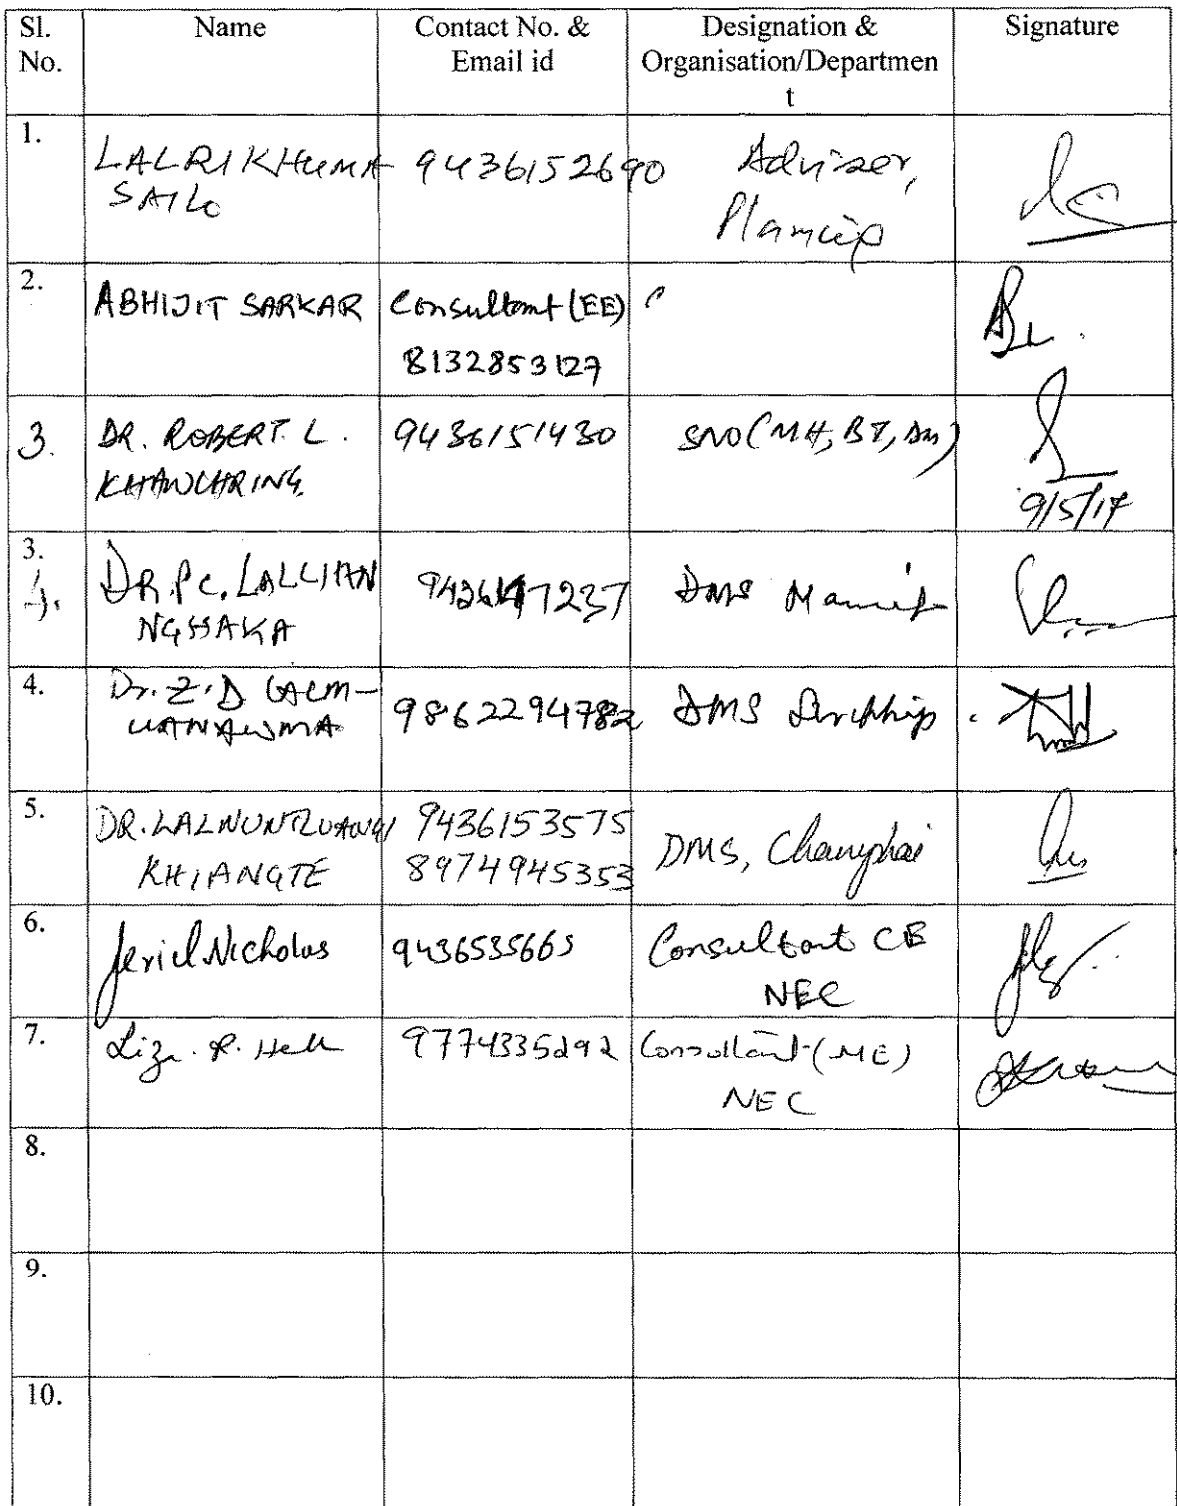 Sl. No. Name Contact No. & Email id Designation & Organisation/Departmen t Signature
1. LALRIKHUMA SAILO 9436152690 Adviser, Planning
2. ABHIJIT SARKAR Consultant (EE) 8132853127
3. DR. ROBERT. L. KHAWLHRING. 9436151430 SNO(MH, BT, 9/5/17
3. 4. DR. P.C. LALLIAN NGHAKA DMS Mamit
4. Dr. Z.D LALM- UANAWMA 9862294782 DMS Serchhip
5. DR. LALNUNTLUANGI KHIANGTE 9436153575 8974945353 DMS, Champhai
6. Jeriel Nicholas 9436535665 Consultant CE NEC
7. 9774335292 Consultant (ME) NEC
8.
9.
10.